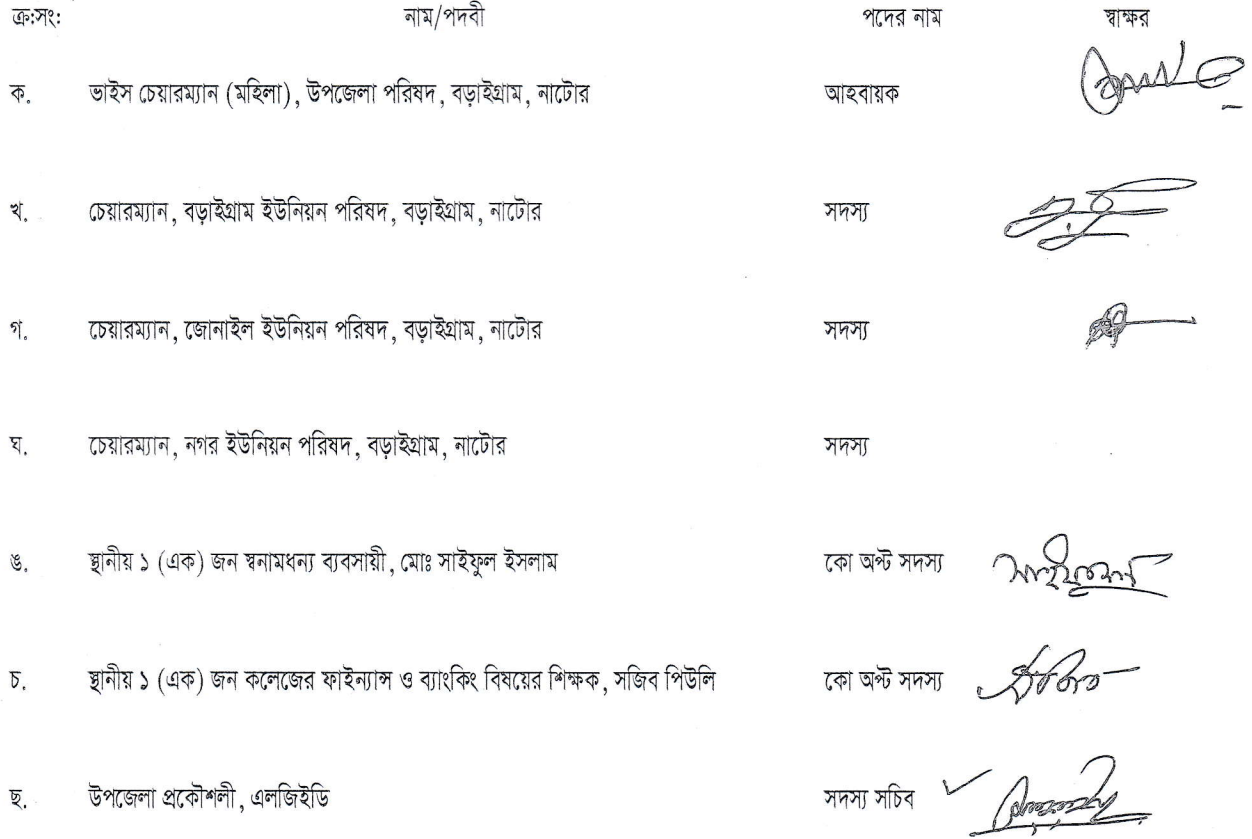 ক্র:সং: নাম/পদবী পদের নাম স্বাক্ষর
ক. ভাইস চেয়ারম্যান (মহিলা), উপজেলা পরিষদ, বড়াইগ্রাম, নাটোর আহবায়ক
খ. চেয়ারম্যান, বড়াইগ্রাম ইউনিয়ন পরিষদ, বড়াইগ্রাম, নাটোর সদস্য
গ. চেয়ারম্যান, জোনাইল ইউনিয়ন পরিষদ, বড়াইগ্রাম, নাটোর সদস্য
ঘ. চেয়ারম্যান, নগর ইউনিয়ন পরিষদ, বড়াইগ্রাম, নাটোর সদস্য
ঙ. স্থানীয় ১ (এক) জন স্বনামধন্য ব্যবসায়ী, মোঃ সাইফুল ইসলাম কো অপ্ট সদস্য
চ. স্থানীয় ১ (এক) জন কলেজের ফাইন্যান্স ও ব্যাংকিং বিষয়ের শিক্ষক, সজিব পিউলি কো অপ্ট সদস্য
ছ. উপজেলা প্রকৌশলী, এলজিইডি সদস্য সচিব